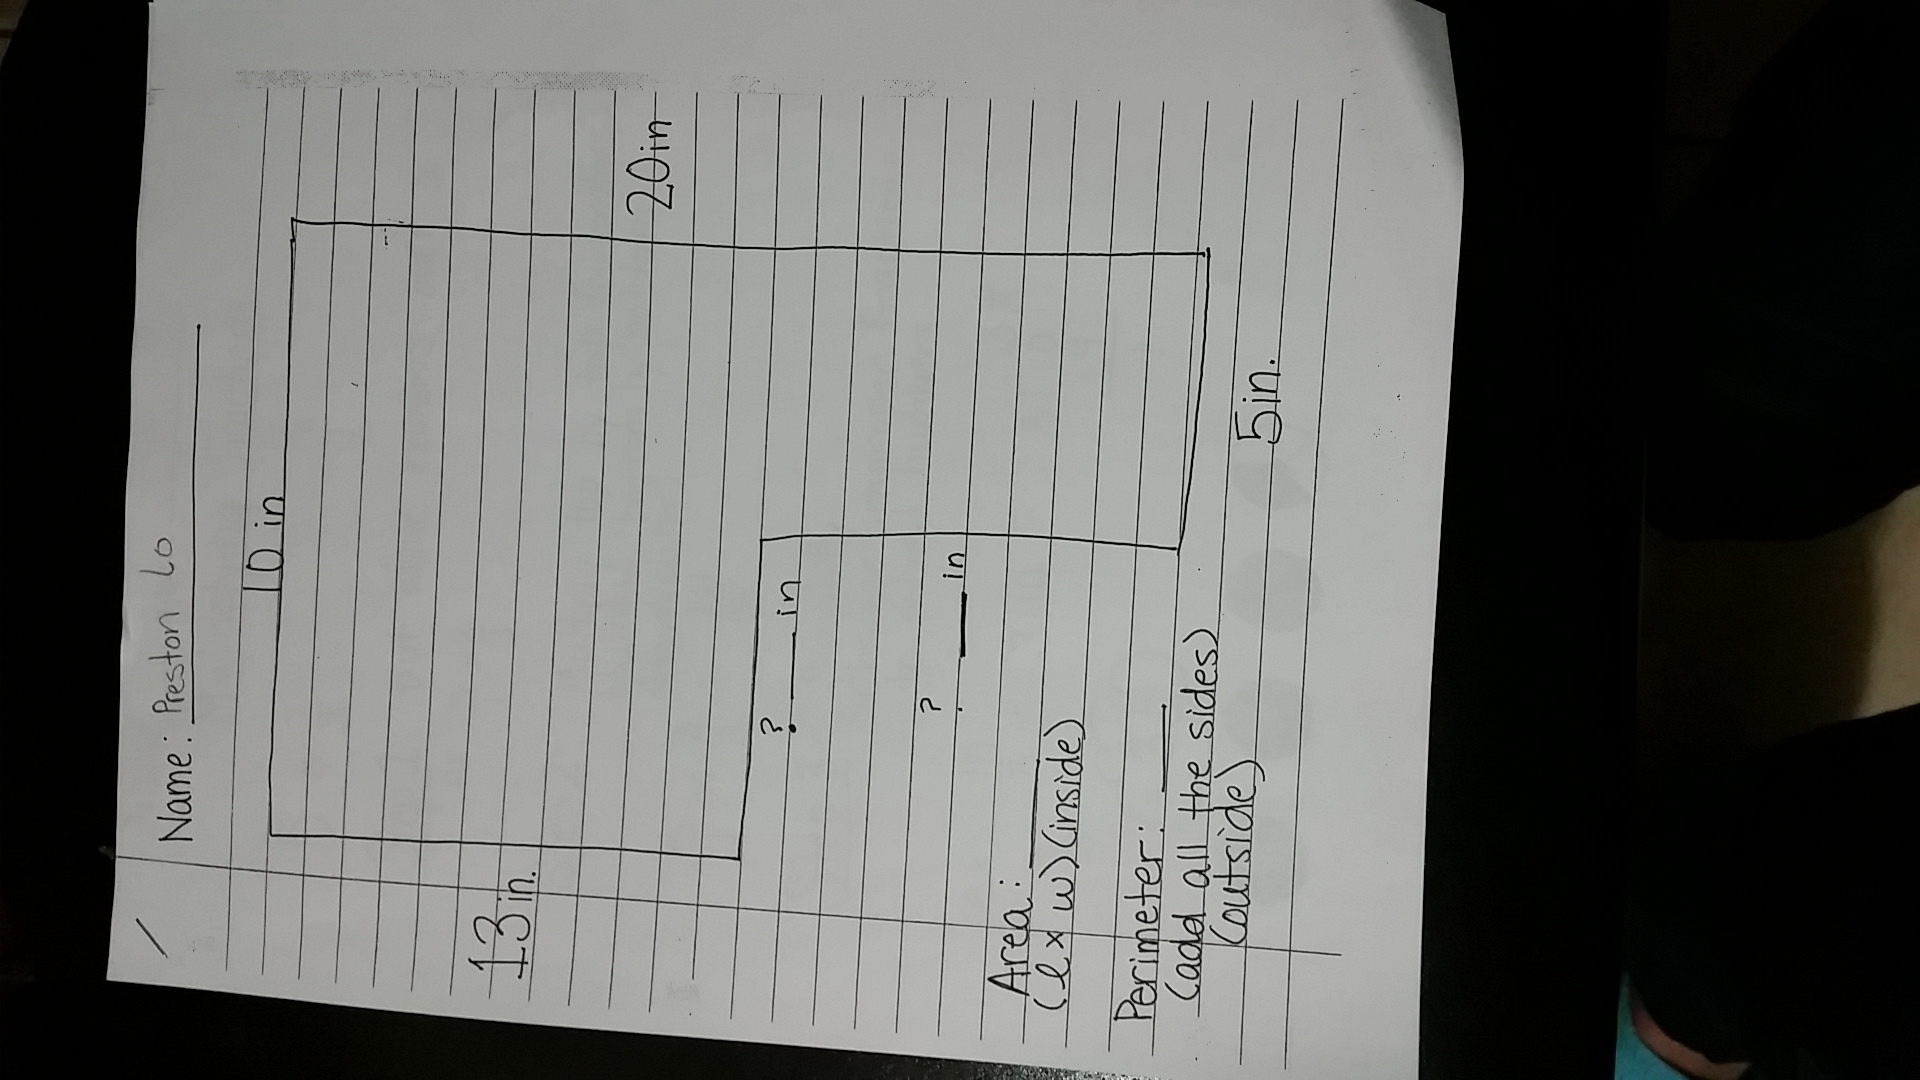 Name: Preston Lo
10 in
20in
13in.
? ___ in
? ___ in
5in.
Area: ____
(l x w)(inside)
Perimeter: ____
(add all the sides)
(outside)